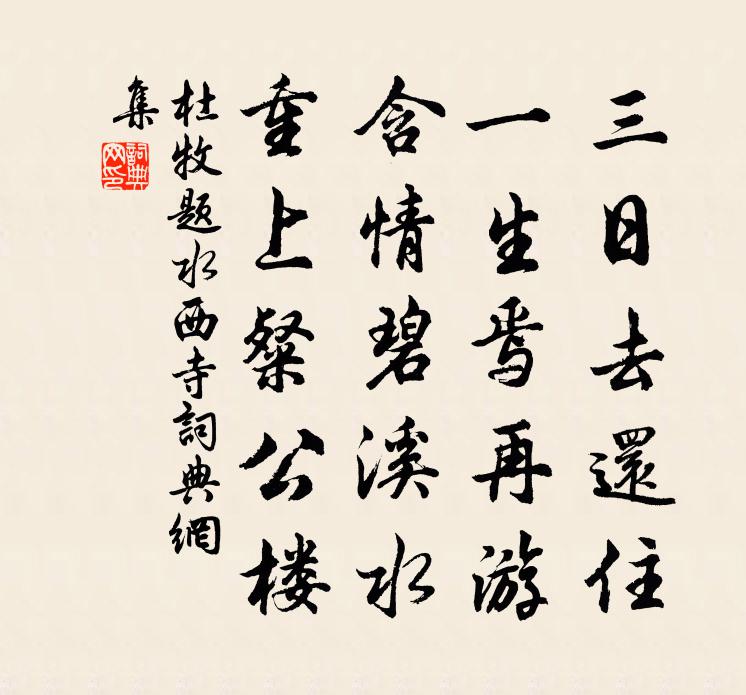 三日去還住
一生焉再游
含情碧溪水
重上粲公楼
杜牧題水西寺詞典網
集
詞典
网印